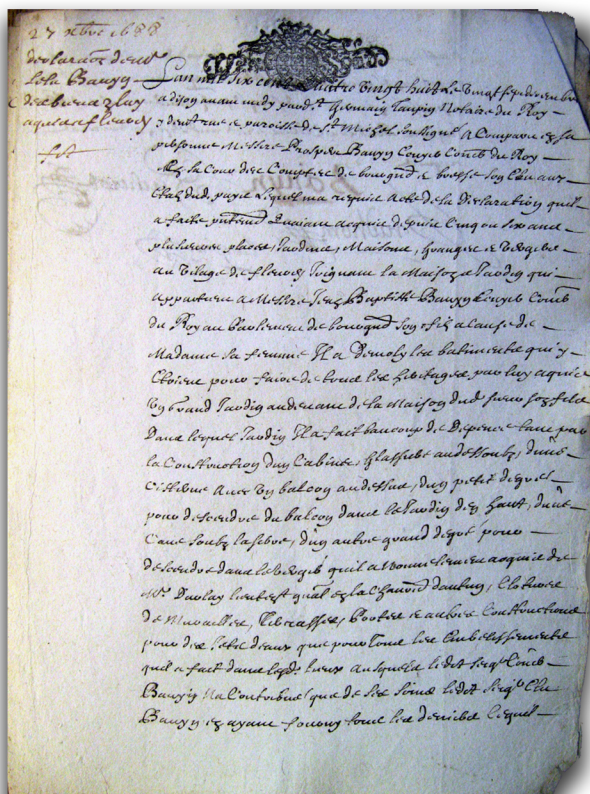 27 xbre 1688
declaraon de mr
Bauyn
des biens par luy
acquis a fleurey
L'an mil six cens quatre vingt huict le vingt sep decembre
a dijon avant midy pardt Germain Taupin Notaire du Roy
demeurant parroisse de St Michel soussigné a Comparu en sa
personne Messire Prosper Bauyn Conser Comre du Roy
en sa Cour des Comptes de bourgne bresse
Estat dud. payis lequel ma requis acte de la declaration quil
a faite quayant acquis depuis Cinq ou six ans
plusieurs places, Jardins, Maisons, Granges et vergers
au village de fleurey joignant la Maison et Jardin qui
appartient a Messire Jean Baptiste Bauyn Conser Comre
du Roy au Parlement de bourgne son fils a cause de
Madame sa femme Il a demoly les batiments qui y
Estoient pour faire de tous les heritages par luy acquis
un grand Jardin au devant de la Maison dud sieur son fils
Dans lequel Jardin Il a fait beaucoup de depence tant par
la Construction dun Cabinet, Glassiere au dessoubs, dune
Cisterne avec un balcon au dessus, dun petit degrel
pour descendre du balcon dans le Jardin den haut, dune
Cave soubs la serre, dun autre grand degré pour
descendre dans le verger quil a nouvellement acquis de
Mr. dautun, Clotures
de Murailles, Terrasses, Portes et autres Constructions
pour des jets deaux que pour tous les Embelissements
quil a fait dans lesd. lieux ausquels ledit seigr Comre
Bauyn na Contribué que de ses soins ledit seigr
Bauyn en ayant fourny tous les deniers lequel